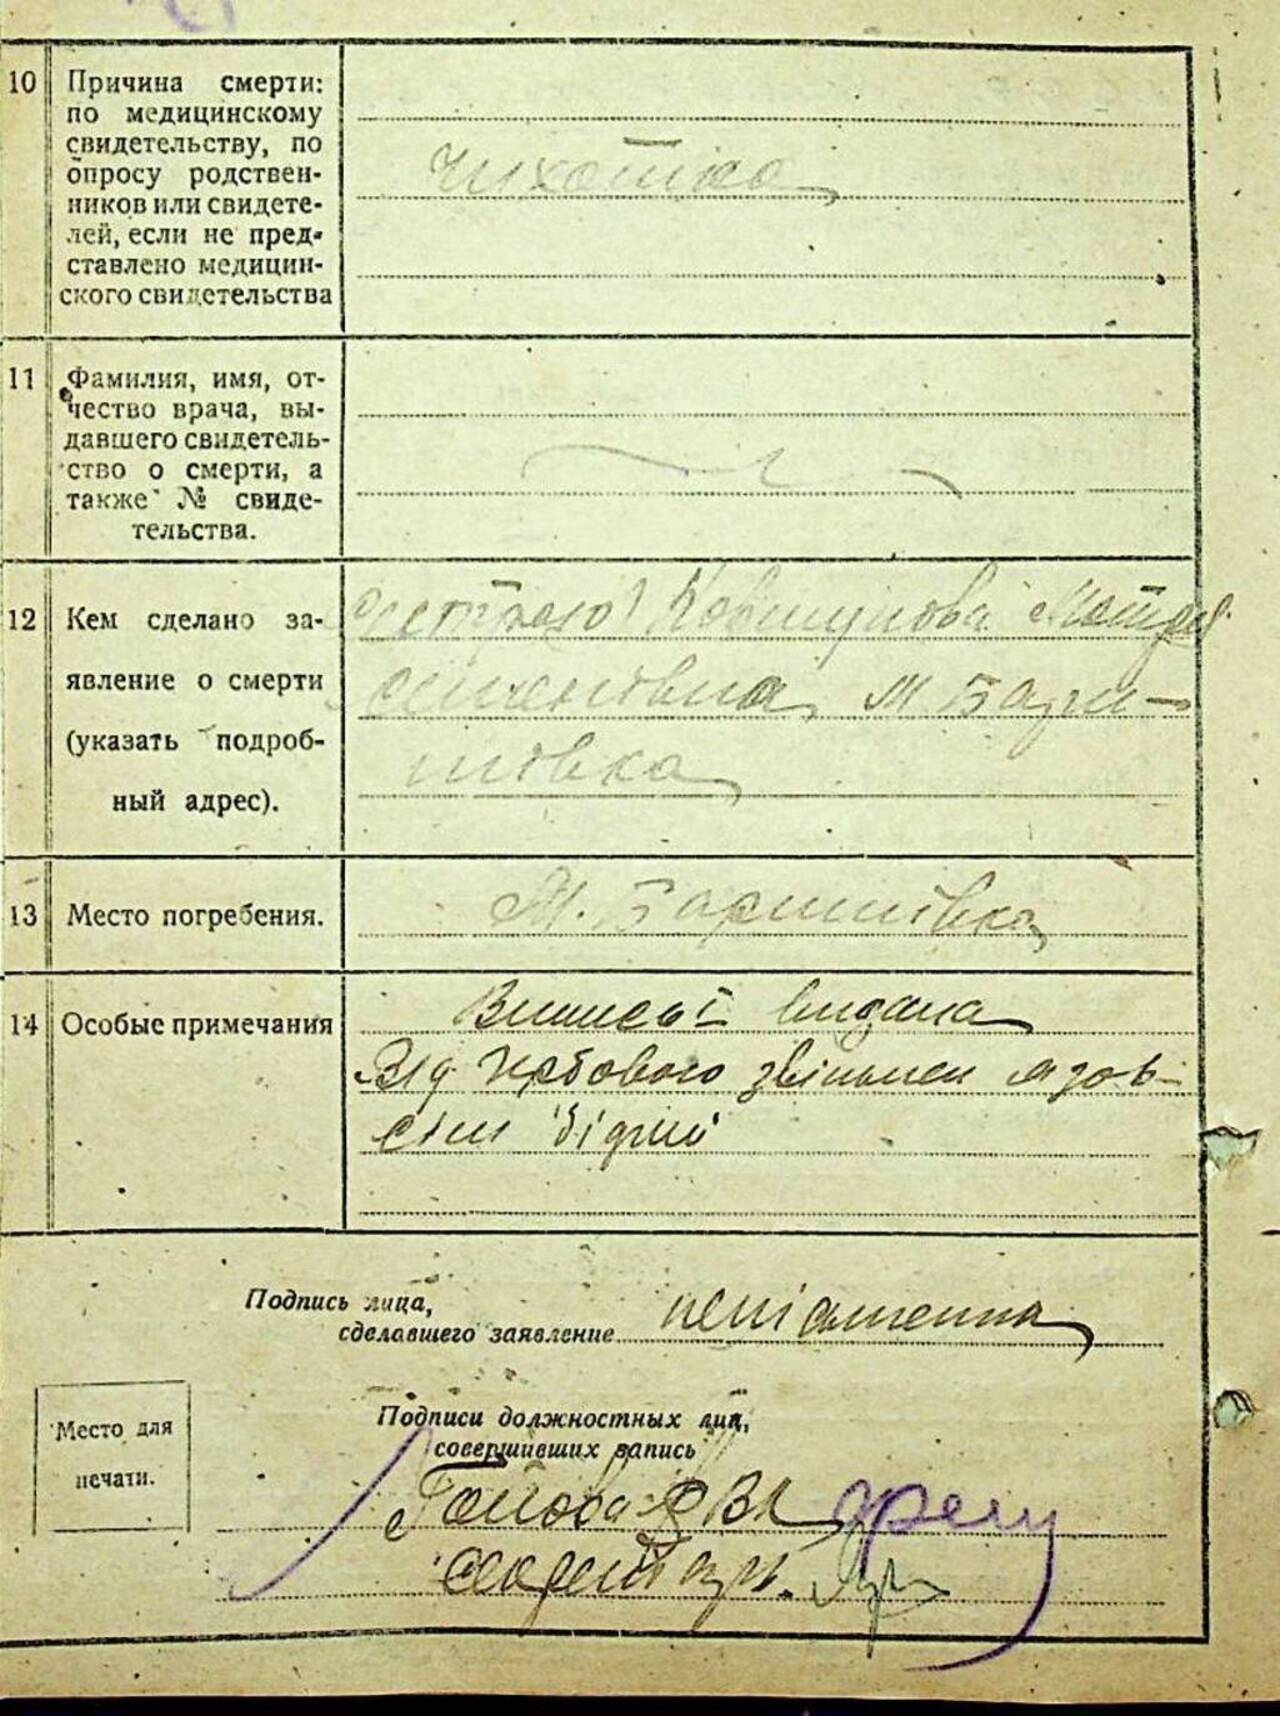 10 Причина смерти:
по медицинскому
свидетельству, по
опросу родствен-
ников или свидете-
лей, если не пред-
ставлено медицин-
ского свидетельства
чихотка
11 Фамилия, имя, от-
чество врача, вы-
давшего свидетель-
ство о смерти, а
также № свиде-
тельства.
12 Кем сделано за-
явление о смерти
(указать подроб-
ный адрес).
сестрою
Семеновна, м Бари-
шовка
13 Место погребения.
М. Баришівка
14 Особые примечания
Виписьь видана
Від збового звільнен язов-
сім бідний
Подпись лица,
сделавшего заявление неписьменна
Место для
печати.
Подписи должностных лиц,
совершивших запись
Голова